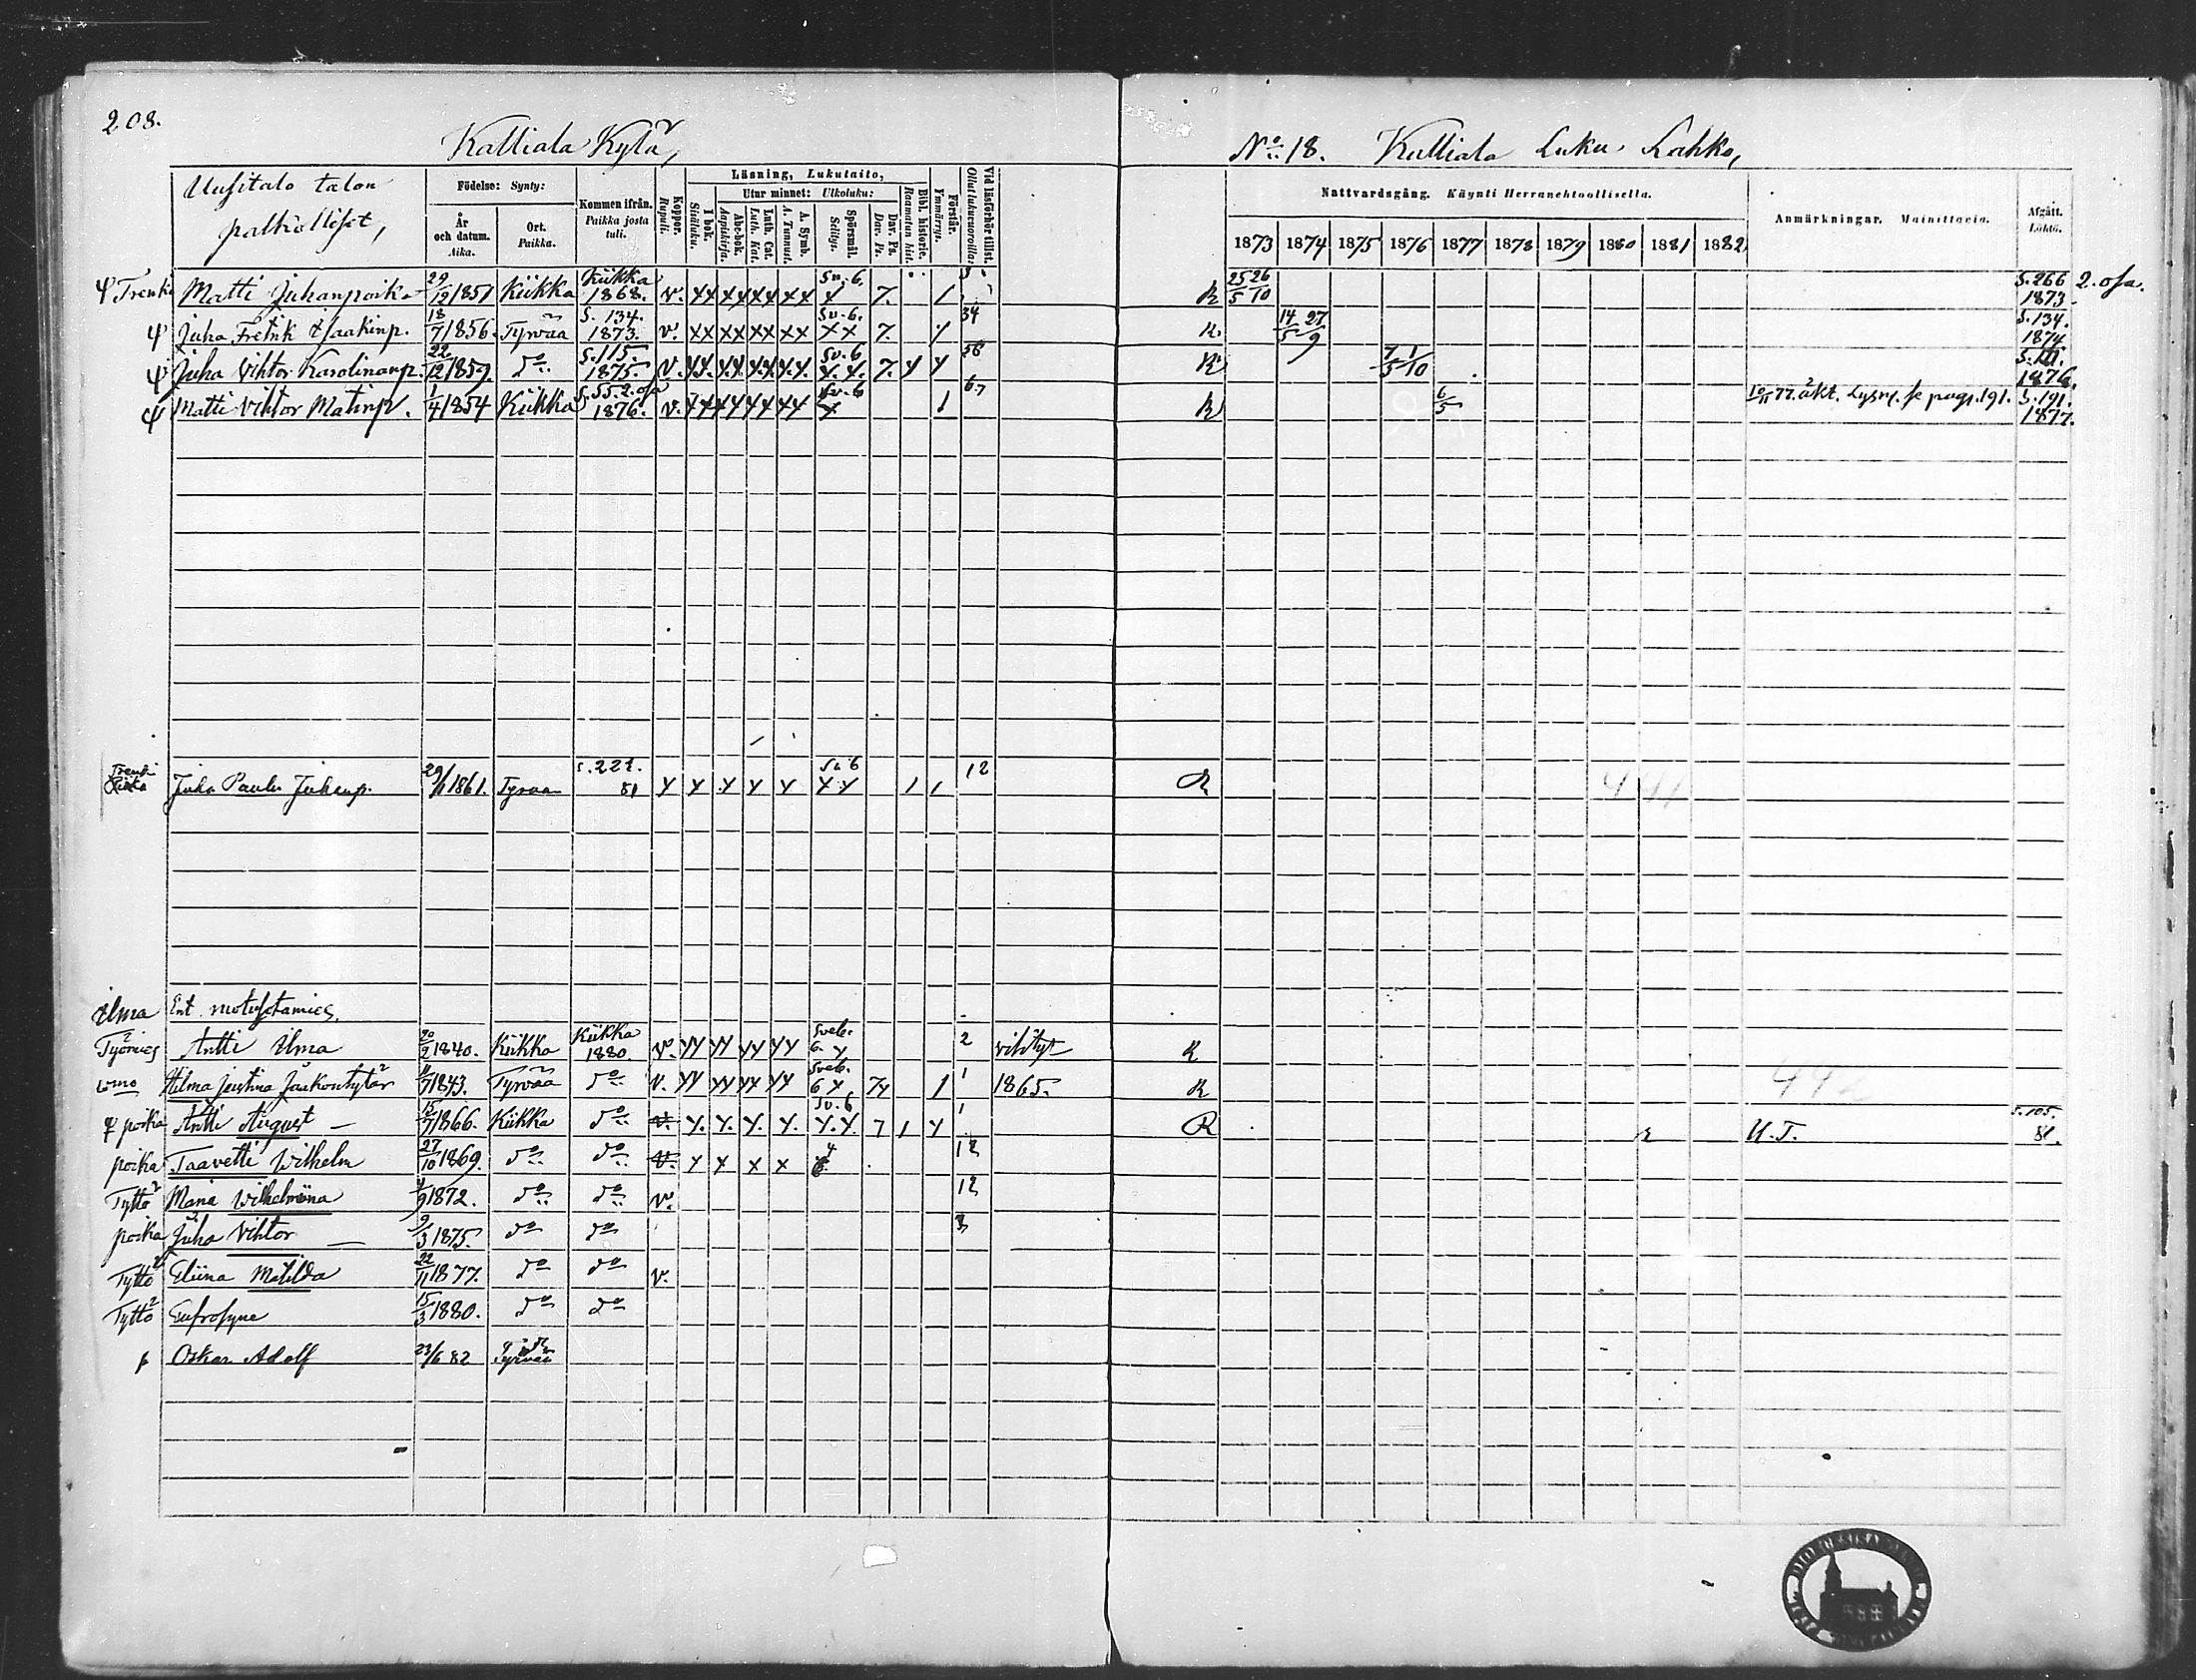 208.
Kalliala Kylä,
No 18. Kalliala Luku Lahko,
Uusitalo talon palkolliset,
Födelse: Synty:
År och datum. Aika.
Ort. Paikka.
Kommen ifrån. Paikka josta tuli.
Koppor. Rupuli.
Läsning, Lukutaito,
I bok. Sisäluku.
Utur minnet: Ulkoluku:
Abc-bok. Aapiskirja.
Luth. Cat. Luth. Kat.
A. Symb. A. Tunnust.
Spörsmål. Selitys.
Dav. Ps. Dav. Ps.
Bibl. Historie. Raamatun hist.
Förstår. Ymmärrys.
Vid läsförhör tillst. Ollut lukuvuoroilla:
Nattvardsgång. Käynti Herranehtoollisella.
1873 1874 1875 1876 1877 1878 1879 1880 1881 1882
Anmärkningar. Mainittavia.
Afgått. Lähtö.
Trenki Matti Juhanpoika 29/12 1851 Kiikka Kiikka 1868. v. xx xx xx xx Sv. 6. x 7. 1 R 25/5 26/10 S. 266 1873. 2. osa.
Juha Fretrik Isaakinp. 18/7 1856. Tyrvää S. 134. 1873. v. xx xx xx xx Sv. 6. xx 7. 34 R. 14/5 27/9 S. 134. 1874
Juha Vihtor Karolinanp. 22/12 1859. do S. 115. 1875. v. xx. xx xx xx. Sv. 6 x.x. 7. R 7/5 1/10 1876.
Matti Vihtor Matinp. 1/4 1854 Kiikka S. 55. 2. osa 1876. v. xx xx xx xx Sv. 6 x 1 R 6/5 S. 191. 1877.
Trenki Poika Juha Paulu Juhanp. 29/1 1861. Tyrvää s. 221. 81 x x x x x Sv 6 x x 1 1 12 R
Ilma Ent. motustamies.
Työmies Antti Ilma 20/2 1840. Kiikka Kiikka 1880. v. xx xx xx xx 6. x 2 vihityt R
vmo Hilma Justina Jaakontytär 1843. Tyrvää do v. xx xx xx xx 6 x 7x 1 1 1865. R
poika Antti August — 15/7 1866. Kiikka do v. x. x. x. x. Sv. 6 x. x. 7 1 x 1 R U. T. S. 105. 81.
poika Taavetti Wilhelm 27/10 1869. do do v. x x x x 12
Tyttö Maria Wilhelmiina 1872. do do v. 12
poika Juha Vihtor — 9/3 1875. do do 3
Tyttö Eliina Matilda 22/11 1877. do do v.
Tyttö Eufrosyne 15/3 1880. do do
p Oskar Adolf 23/6 82 Tyrvää